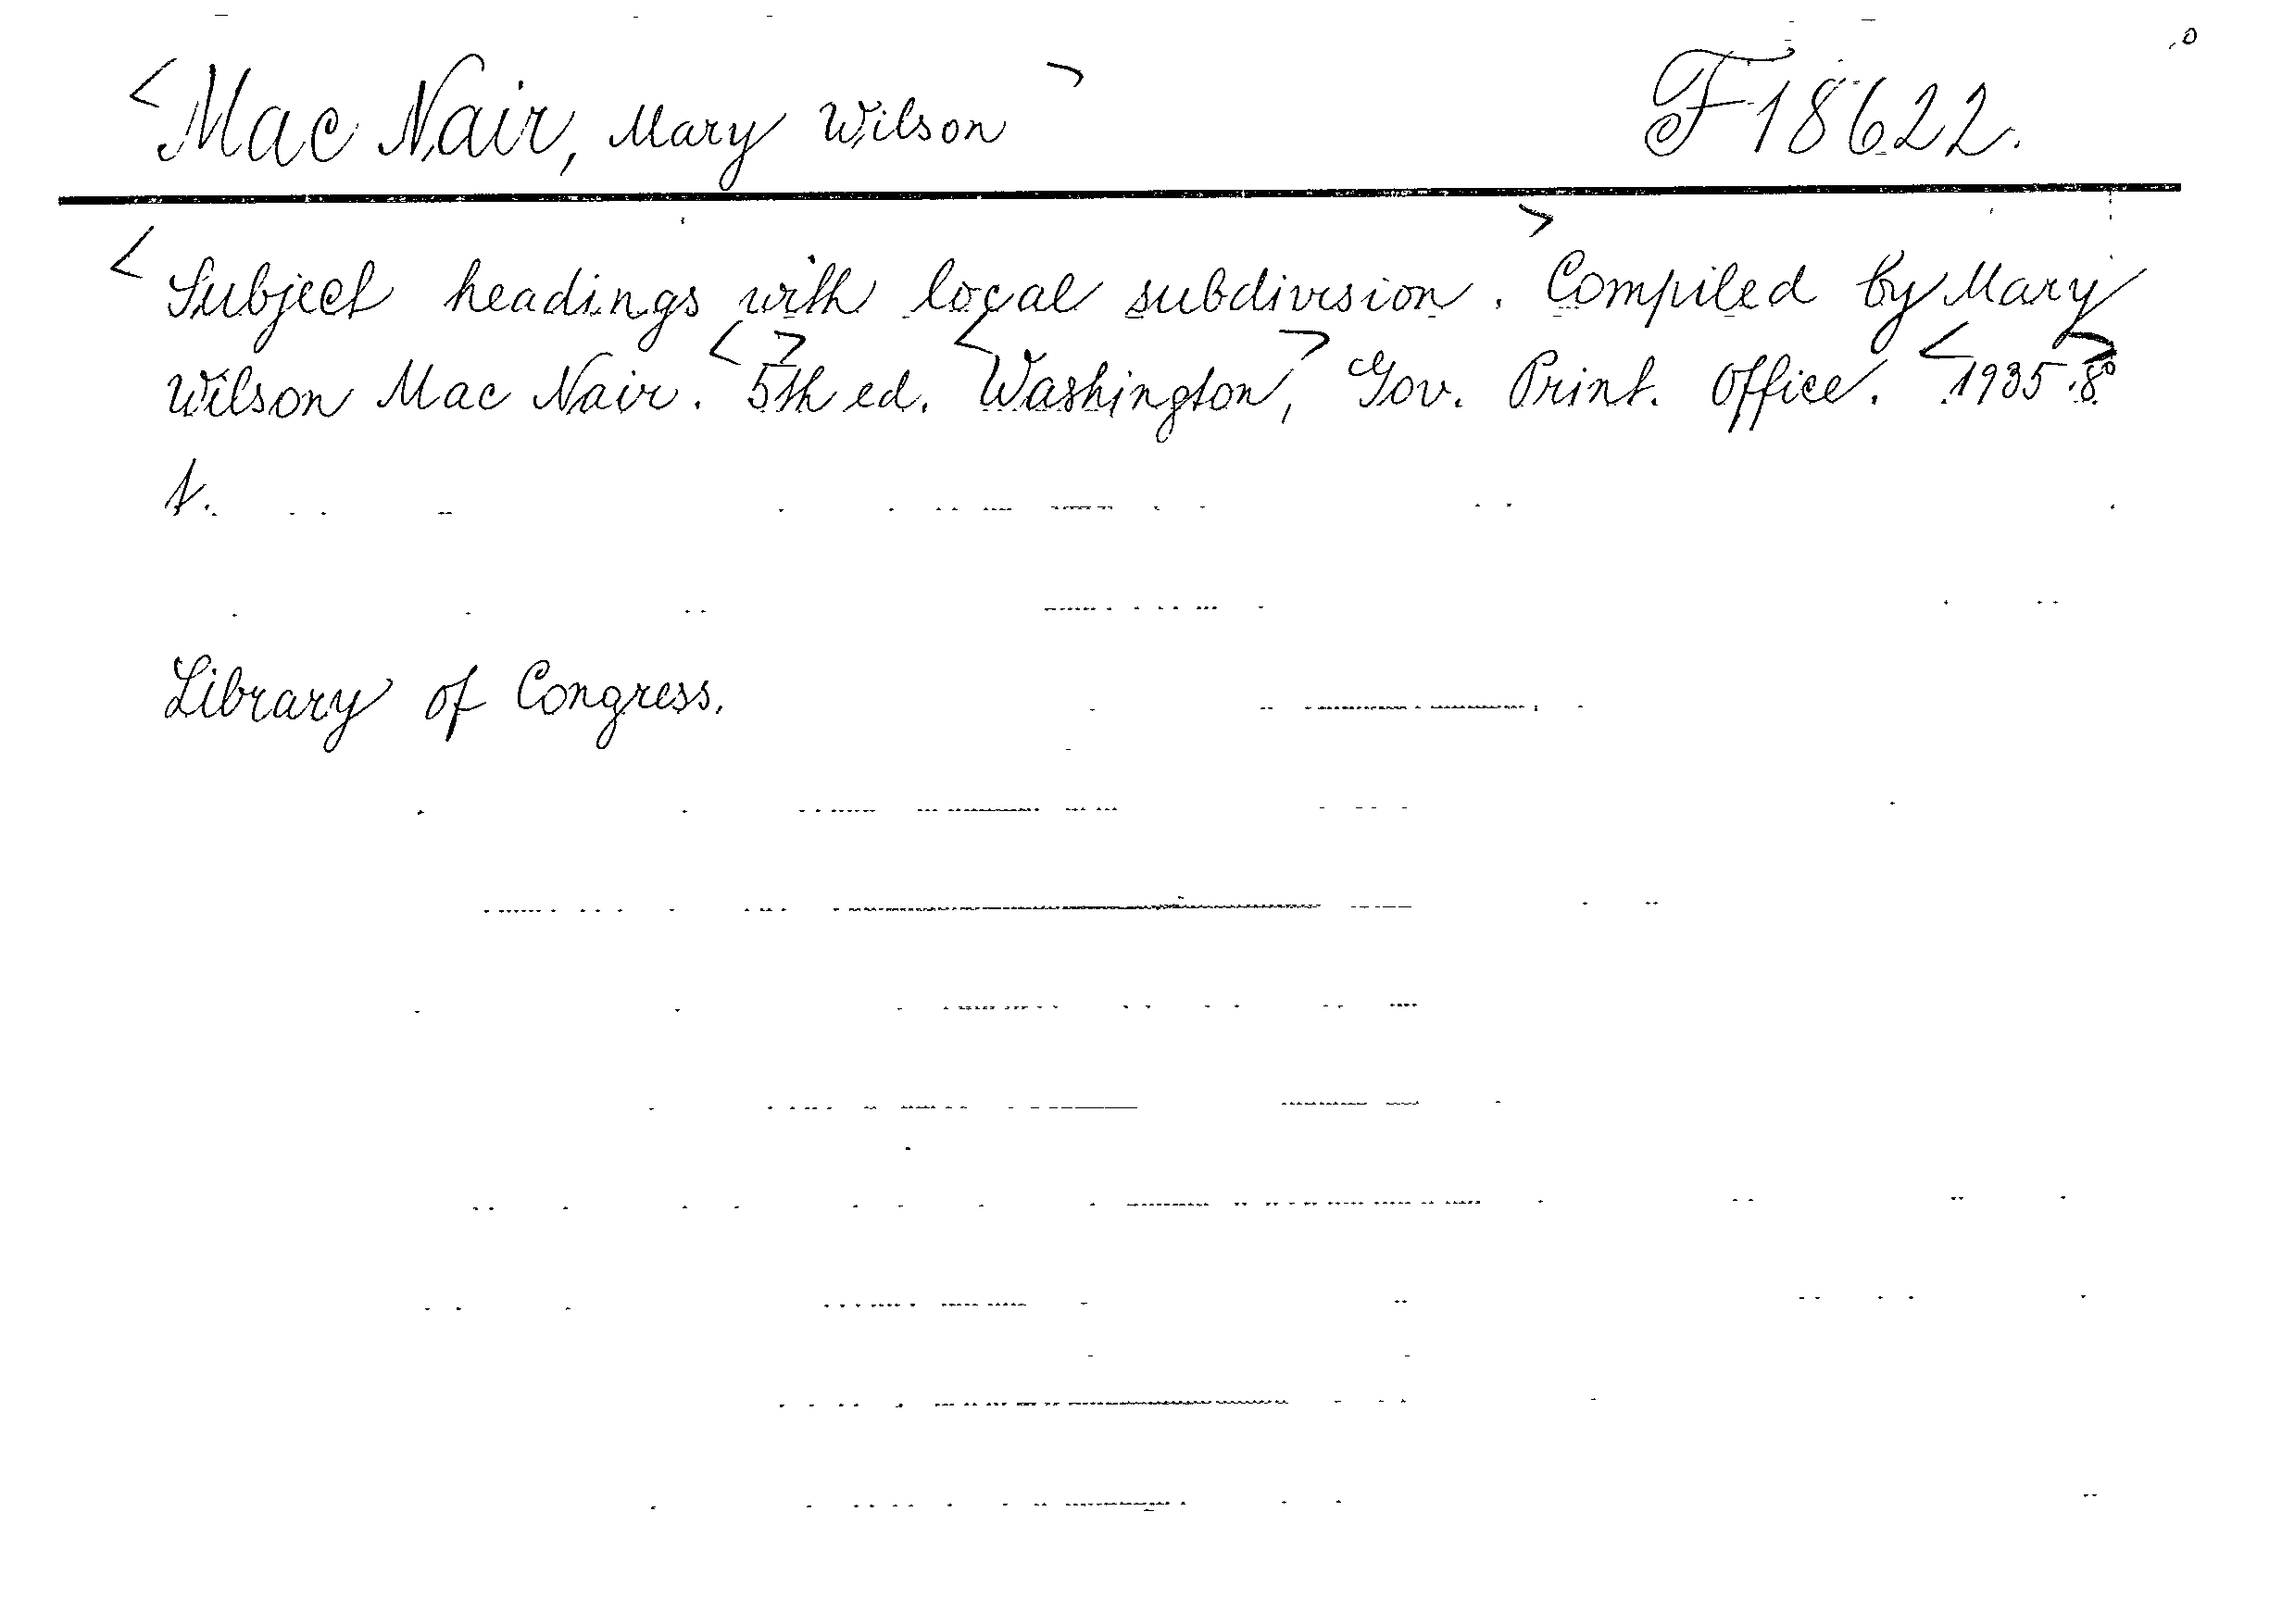 <Mac Nair, Mary Wilson> F 18622.
<Subject headings with local subdivision.> Compiled by Mary
Wilson Mac Nair. <5>th ed. <Washington,> Gov. Print. Office. <1935>. 8°
t.
Library of Congress.